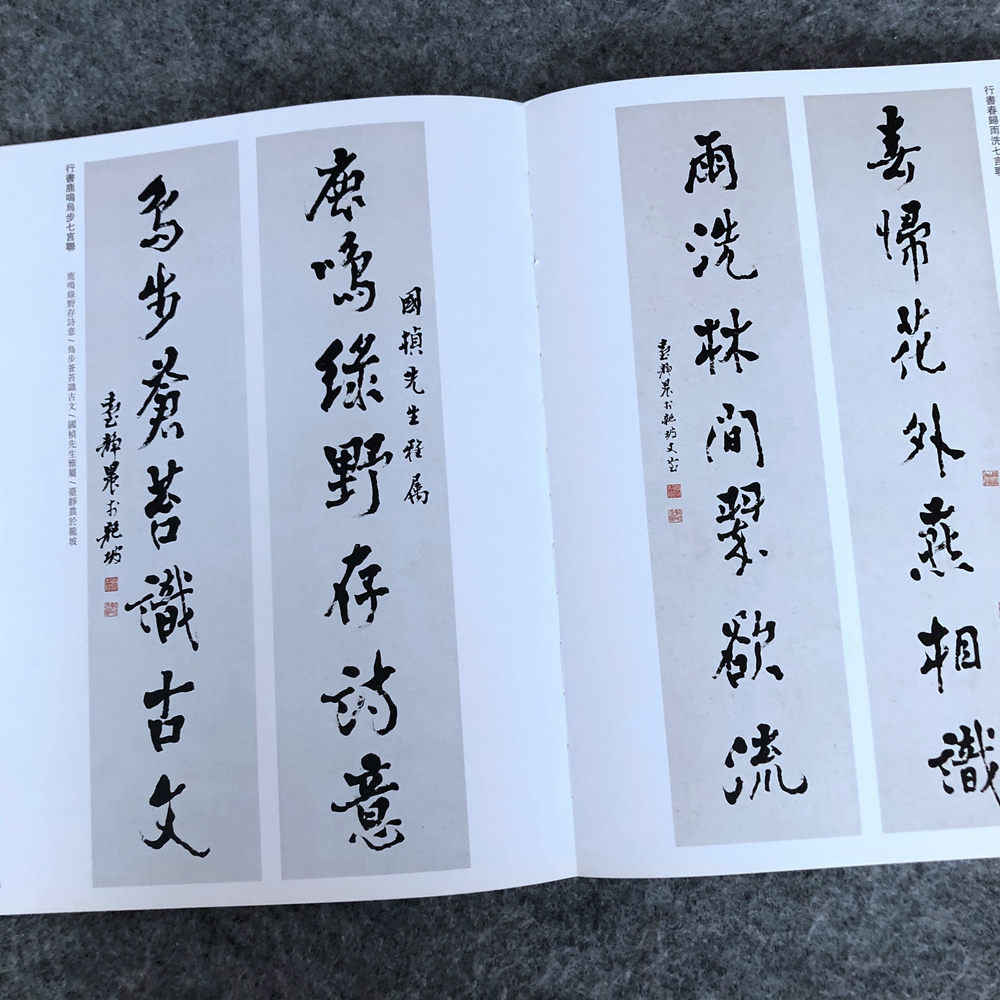 行書春歸雨洗七言聯
春歸花外燕相識
雨洗林間翠欲流
臺靜農於龍坡丈室
國楨先生雅属
鹿鳴綠野存詩意
鳥步蒼苔識古文
臺靜農於龍坡
行書鹿鳴鳥步七言聯
鹿鳴綠野存詩意/鳥步蒼苔識古文/國楨先生雅屬/臺靜農於龍坡